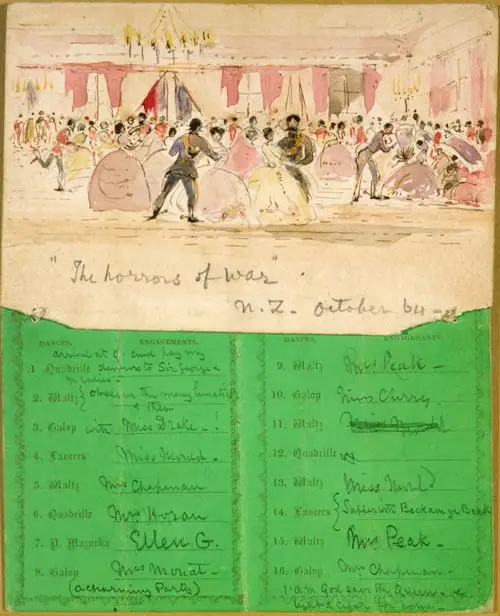 "The horrors of war".
N.Z. - October 64 -
DANCES. ENGAGEMENTS.
arrival at 9. and pay my
1. Quadrille devoirs to Sir George &
2. Waltz } observe the many
& then
3. Galop with Miss Drake - !
4. Lancers Miss Mould.
5. Waltz Mrs Chapman
6. Quadrille Mrs Horan
7. P. Mazurka Ellen G.
8. Galop Miss Moriat -
(a charming Party)
DANCES. ENGAGEMENTS.
9. Waltz Mrs Peak -
10. Galop Miss Clurry
11. Waltz
12. Quadrille
13. Waltz Miss Mould
14. Lancers { Supper with
15. Waltz Mrs Peak -
16. Galop Mrs Chapman.
1 a.m. God save the Queen -
light a cigar for home -